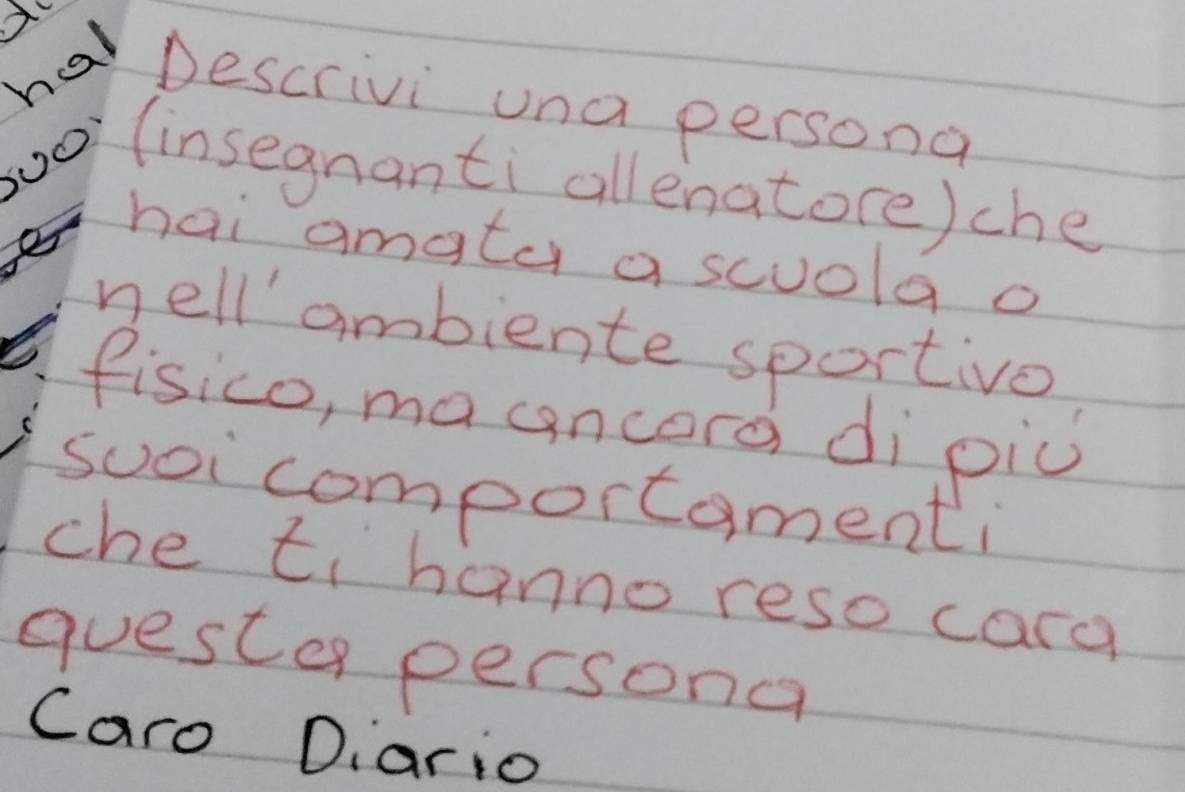 Descrivi una persona
(insegnanti allenatore) che
hai amata a scuola o
nell'ambiente sportivo
fisico, ma ancora di più
suoi comportamenti
che ti hanno reso cara
questa persona
Caro Diario